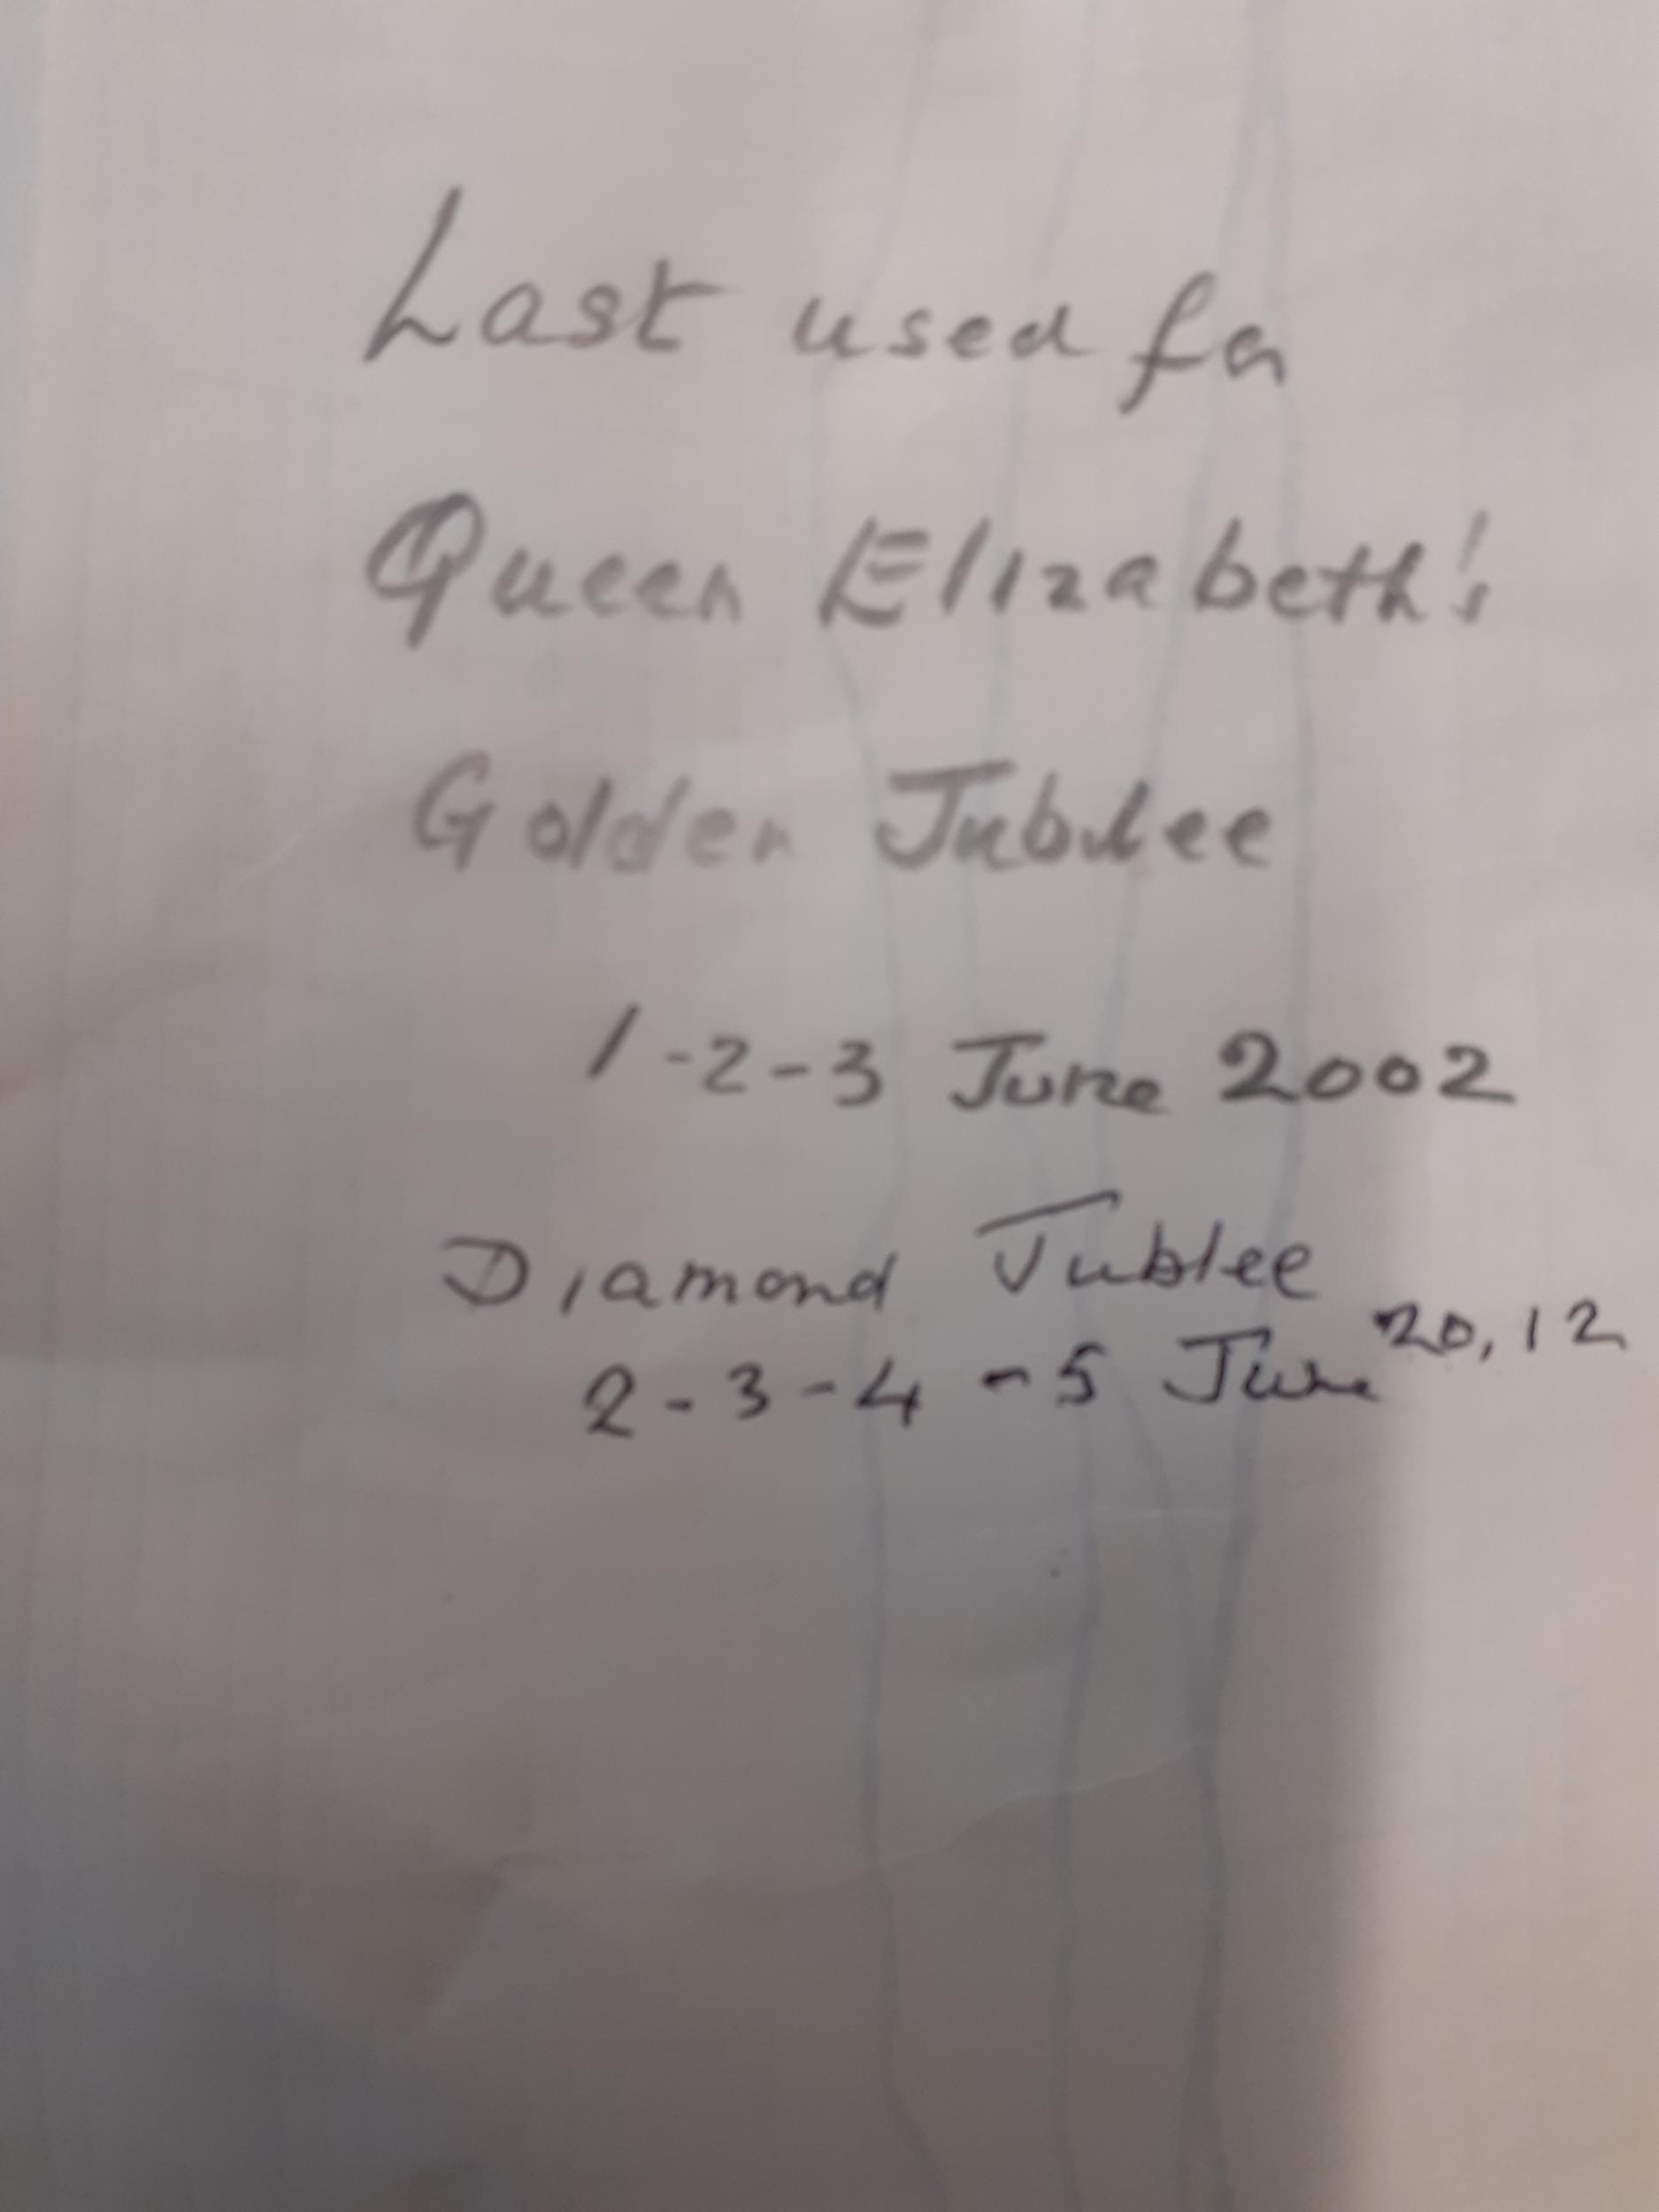 Last used for
Queen Elizabeth's
Golden Jubilee
1-2-3 June 2002
Diamond Jublee
2-3-4-5 June 20,12